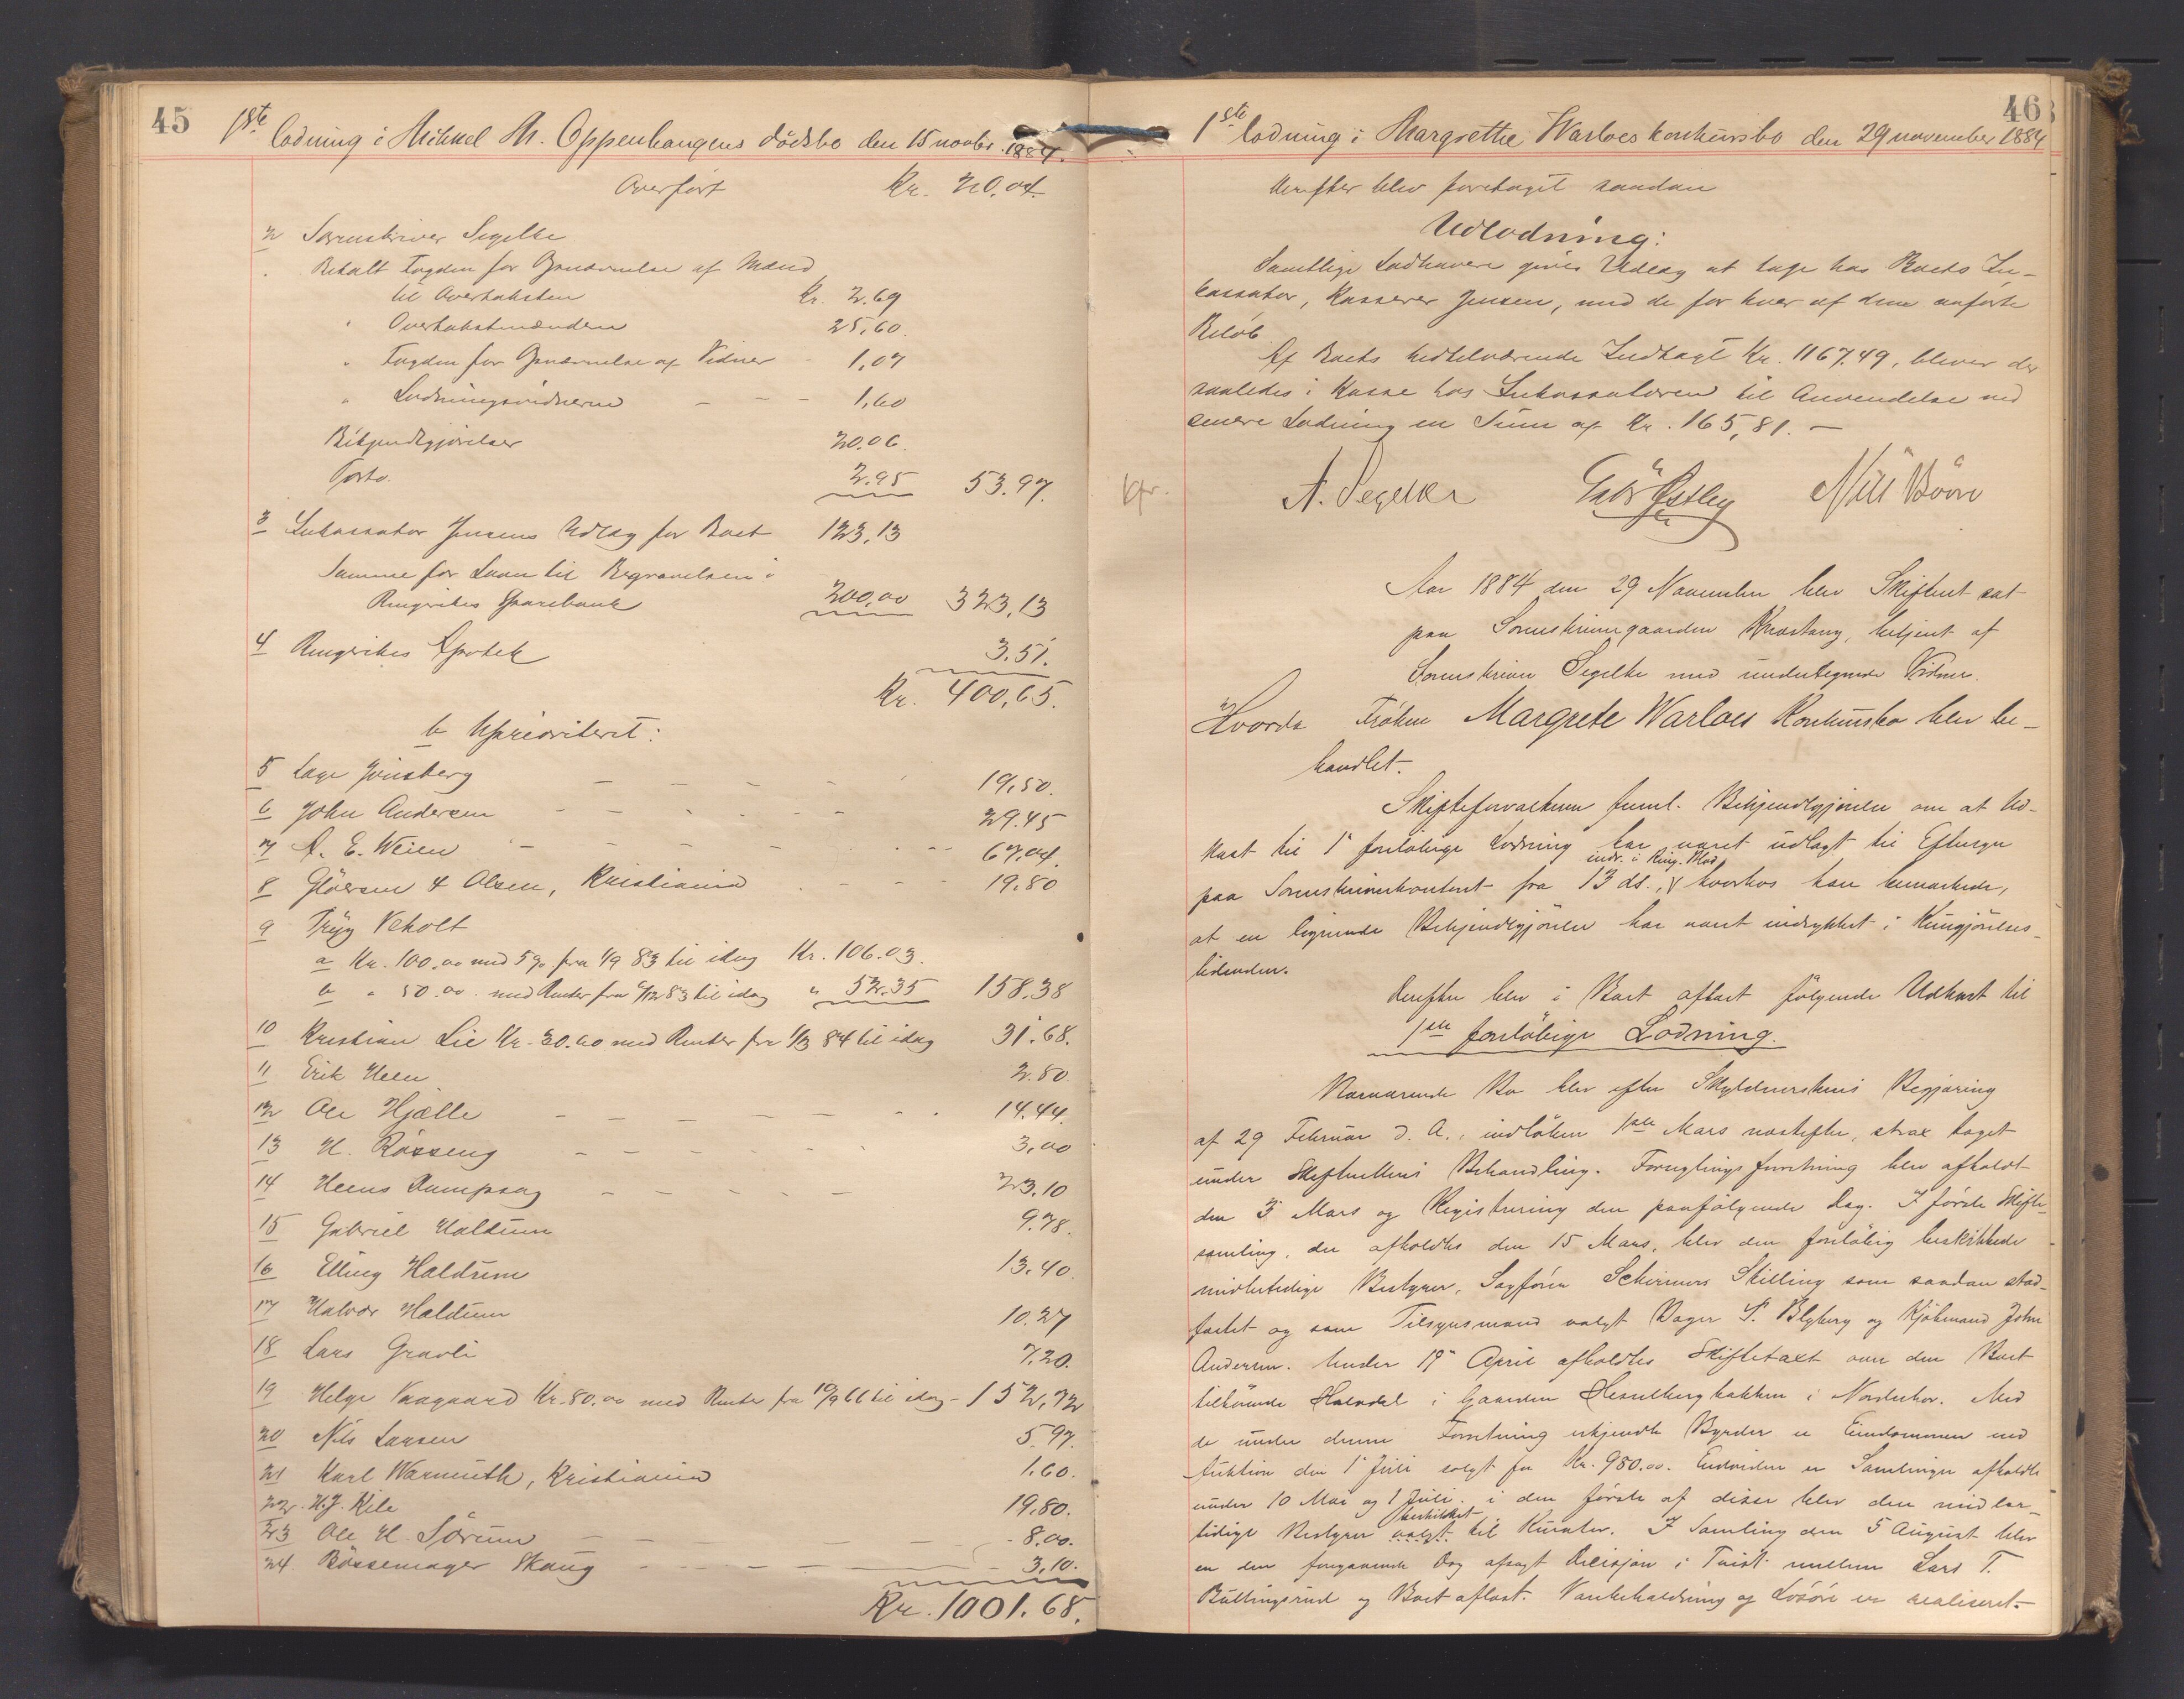 45
1ste lodning i Mikkel Chr. Oppenhangens dødsbo den 15 novbr. 1884.
Overført Kr. 20.04.
2 Sorenskriver Segelke
Betalt Fogden for Opnævnelse af Mænd
til Overtaksten Kr. 2.69
" Overtakstmændene 25,60.
" Fogden for Opnævnelse af Vidner - 1,07
" Lodningsvidnerne - - - 1,60
Bekjendtgjørelser 20.06.
Porto. 2.95 53.97.
3 Inkassator Jensens Udlæg for Boet 123,13
Samme for Laan til Begravelsen i
Ringerikes Sparebank 200,00 323,13
4 Ringerikes Apotek 3.51.
Kr. 400,65.
b Uprioriteret:
5 Lage Jonsberg - - - - 19,50.
6 John Andersen - - - - 29.45
7 A. E. Weien - - - - 67,04.
8 Gløersen & Olsen, Kristiania - - - 19.80
9 Tryg Veholt
a Kr. 100,00 med 5 % fra 1/9 83 til idag Kr. 106.03.
b " 50.00. med Renter fra 6/12 83 til idag " 52.35 158.38
10 Kristian Lie Kr. 30.00 med Renter fra 1/3 84 til idag 31.68.
11 Erik Heen 2.80.
12 Ole Hjelle - - - - 14.44.
13 H. Røsseng - - - - 3,00
14 Heens Dampsag - - - - 23.10
15 Gabriel Haldum 9.78.
16 Elling Haldum 13.40.
17 Halvor Haldum 10.27
18 Lars Gravli 7,20.
19 Helge Vaagaard Kr. 80.00 med Renter fra 10/9 66 til idag - 152,72
20 Nils Larsen 5.97.
21 Karl Warmuth, Kristiania 1.60.
22. H. J. Kile 19.80.
23 Ole H. Sørum - - - - 8,00.
24 Bøssemager Skaug - - - - 3,10.
Kr. 1001.68.
46
1ste lodning i Margrethe Warloes konkursbo den 29 november 1884
Derefter blev foretaget saadan
Udlodning:
Samtlige Lodhavere gives Udlæg at tage hos Boets In-
kassator, Kasserer Jensen, med de for hver af dem anførte
Beløb.
Af Boets tilværende Indtægt Kr. 1167.49, bliver der
saaledes i Kasse hos Inkassatoren til Anvendelse ved
senere Lodning en Sum af Kr. 165,81. -
kfr. A. Segelke Gabr Østby Nill Bøve
Aar 1884 den 29 November blev Skifteret sat
paa Sorenskrivergaarden Knestang, betjent af
Sorenskriver Segelke med undertegnede Vidner.
Hvorda Frøken Margrete Warloes Konkursbo blev be-
handlet.
Skifteforvalteren freml. Bekjendtgjørelse om at Ud-
kast til 1e foreløbige Lodning har været udlagt til Eftersyn
indr. i Ring. Blad
paa Sorenskriverkontoret fra 13 ds., hvorhos han bemærkede,
at en lignende Bekjendtgjørelse har været indrykket i Kungjørelses-
tidenden.
Derefter blev i Boet aflæst følgende Udkast til
1ste foreløbige Lodning.
Nærværende Bo blev efter Skyldnerskens Begjæring
af 29 Februar d. A., indløben 1ste Mars næstefter, strax taget
under Skifterettens Behandling. Forseglingsforretning blev afholdt
den 3 Mars og Registrering den paafølgende Dag. I første Skifte-
samling, der afholdtes den 15 Mars, blev den foreløbig beskikkede
midlertidige Bestyrer, Sagfører Schirmers Skilling som saadan stad-
fæstet og som Tilsynsmænd valgt Bager P. Blyberg og Kjøbmand John
Andersen. Under 19e April afholdtes Skiftetaxt over den Boet
tilhørende Halvdel i Gaarden Hesselbergbakken i Norderhov. Med
de under denne Forretning erkjendte Byrder er Eiendommen ved
Auktion den 1e Juli solgt for Kr. 980.00. Endvidere er Samlinger afholdte
under 10 Mai og 1 Juli. i den første af disse blev den midler-
beskikket
tidige Bestyrer valgt til Kurator. I Samling den 5 August blev
en den foregaaende Dag afsagt Decisjon i Tvist mellem Lars T.
Bullingsrud og Boet aflæst. Varebeholdning og Løsøre er realiseret.